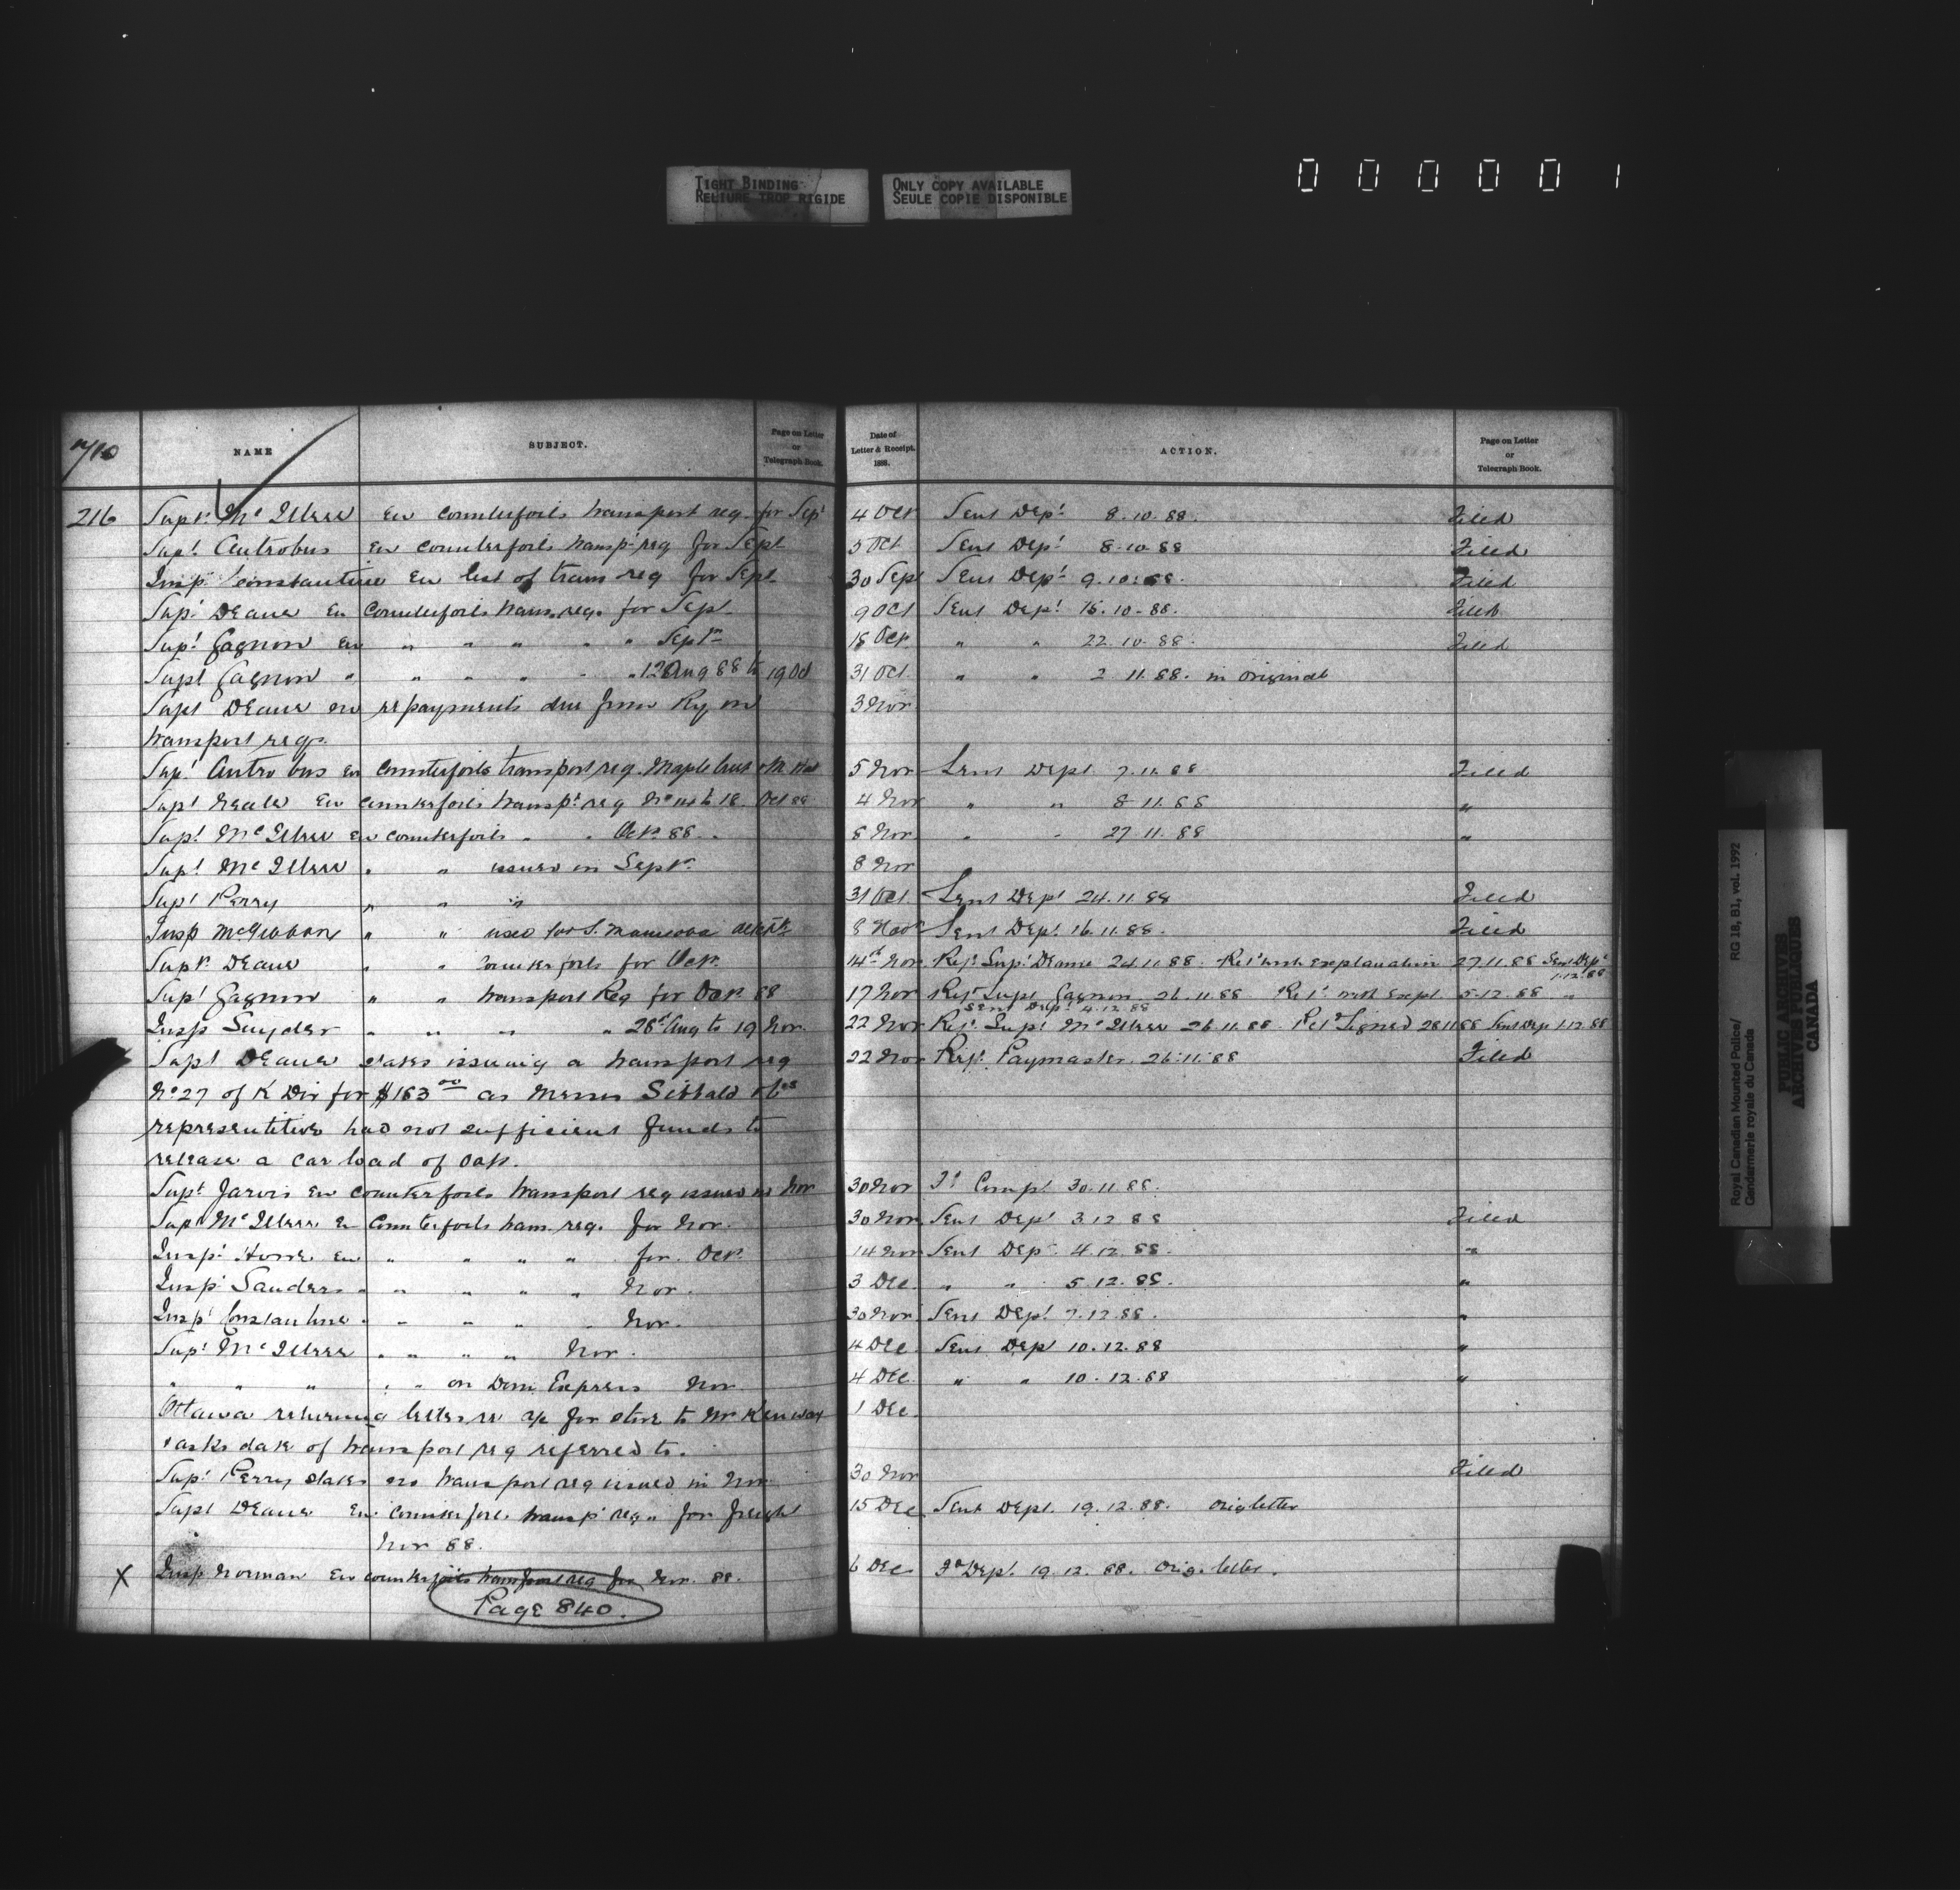 TIGHT BINDING
RELIURE TROP RIGIDE
ONLY COPY AVAILABLE
SEULE COPIE DISPONIBLE
000001
NAME SUBJECT. Page on Letter or Telegraph Book. Date of Letter & Receipt. 1888. ACTION. Page on Letter or Telegraph Book.
216 Supt. McIllree En counterfoils transport req. for Sept 4 Oct Sent Dept 8.10.88. Filed
Supt. Antrobus En counterfoils transpt req for Sept 5 Oct Sent Dept 8.10.88 Filed
Insp. Constantine En list of trans req for Sept 30 Sept Sent Dept 9.10.88. Filed
Supt Deane En Counterfoils trans. req. for Sept. 9 Oct Sent Dept 15.10.88. Filed
Supt Gagnon En " " " " " Septr 18 Oct " " 22.10.88. Filed
Supt Gagnon " " " " " " 12 Aug 88 to 19 Oct 31 Oct. " " 2.11.88. in original
Supt Deane en repayments due from Ry on 3 Nov
transport reqs.
Supt Antrobus En Counterfoils transport req. Maple Creek & M. Hat 5 Nov Sent Dept 7.11.88 Filed
Supt Neale En Counterfoils transpt req No 14 to 18. Oct 88 4 Nov " " 8.11.88 "
Supt. McIllree En counterfoils " " Oct. 88. 8 Nov " " 27.11.88 "
Supt McIllree " " issued in Sept. 8 Nov
Supt Perry " " " 31 Oct Sent Dept 24.11.88 Filed
Insp McGibbon " " used for S. Manitoba detcht 8 Nov Sent Dept. 16.11.88. Filed
Supt. Deane " " Counterfoils for Oct. 14th Nov Ref. Supt Deane 24.11.88. Ret with explanation 27.11.88 Sent Dept 1.12.88
Supt Gagnon " " transport Req for Oct 88 17 Nov Ref Supt Gagnon 26.11.88 Ret. with expl. 5.12.88 "
Sent Dept. 4.12.88
Insp Snyder " " " " 28th Aug to 19 Nov. 22 Nov Ref. Supt McIllree 26.11.88 Retd Signed 28.11.88 Sent Dep 1.12.88
Supt Deane states issuing a transport req 22 Nov Ref. Paymaster 26.11.88 Filed
No 27 of K Div for $163 00 as Messrs Sibbald & Cos
representitive had not sufficient funds to
release a car load of Oats.
Supt Jarvis En counterfoils transport req issued in Nov 30 Nov Fd Compt 30.11.88.
Supt McIllree En Counterfoils trans. req. for Nov. 30 Nov Sent Dept 3.12.88 Filed
Inspt Howe En " " " " for Oct. 14 Nov Sent Dept 4.12.88. "
Inspt Sanders " " " " " Nov. 3 Dec " " 5.12.88. "
Inspt Constantine " " " " " Nov. 30 Nov Sent Dept 7.12.88. "
Supt McIllree " " " " Nov. 4 Dec Sent Dept 10.12.88 "
" " " " " on Dom Express Nov. 4 Dec " " 10.12.88 "
Ottawa returning letter re a/c for stove to Mr 1 Dec
& asks date of transport req referred to.
Supt Perry states no transport req issued in Nov 30 Nov Filed
Supt Deane En counterfoils transpt req. for freight 15 Dec Sent Dept. 19.12.88. orig letter
Nov 88.
X Insp Norman En counterfoils transport req for Nov. 88. 6 Dec Fd Dept. 19.12.88. Orig. letter.
Page 840.
Royal Canadian Mounted Police/
Gendarmerie royale du Canada
RG 18, B1, vol. 1992
PUBLIC ARCHIVES
ARCHIVES PUBLIQUES
CANADA